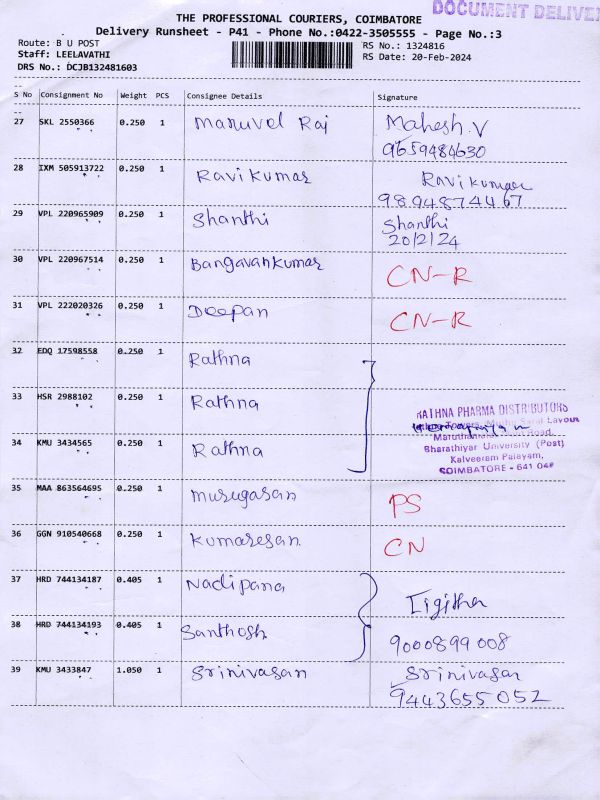 DOCUMENT DELIVER
THE PROFESSIONAL COURIERS, COIMBATORE
Delivery Runsheet - P41 - Phone No.:0422-3505555 - Page No.:3
Route: B U POST
RS No.: 1324816
Staff: LEELAVATHI
RS Date: 20-Feb-2024
DRS No.: DCJB132481603
S No Consignment No Weight PCS Consignee Details Signature
27 SKL 2550366 0.250 1 Manuvel Raj Mahesh.V
9659484630
28 IXM 505913722 0.250 1 Ravi kumar Ravi kumar
9894874467
29 VPL 220965909 0.250 1 Shanthi Shanthi
20/2/24
30 VPL 220967514 0.250 1 Bangavankumar CN-R
31 VPL 222020326 0.250 1 Deepan CN-R
32 EDQ 17598558 0.250 1 Rathna
33 HSR 2988102 0.250 1 Rathna
RATHNA PHARMA DISTRIBUTORS
Layout
Road,
34 KMU 3434565 0.250 1 Rathna
Bharathiyar University (Post)
Kalveeram Palayam,
COIMBATORE - 641 04
35 MAA 863564695 0.250 1 Murugasan PS
36 GGN 910540668 0.250 1 Kumaresan CN
37 HRD 744134187 0.405 1 Nadipana
38 HRD 744134193 0.405 1 Santhosh 9000899008
39 KMU 3433847 1.050 1 Srinivasan Srinivasan
9443655052